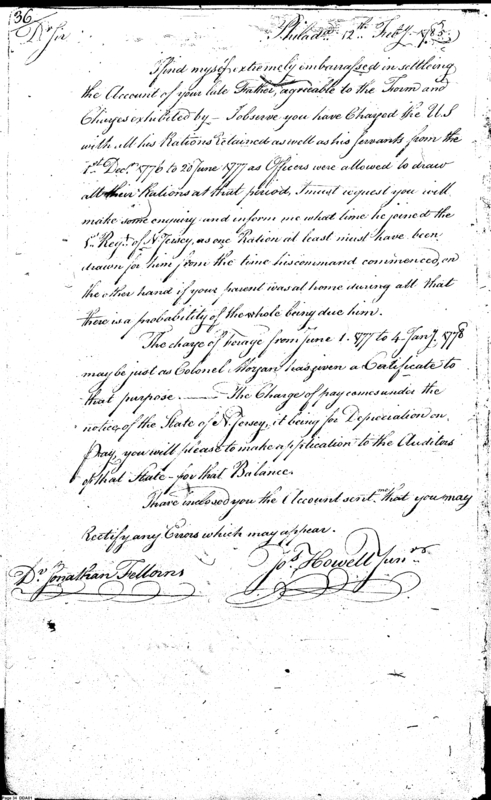 36
Philada. 12th. Feby. 1785
Dr Sir
I find myself extremely embarrassed in settleing
the Account of your late Father, agreeable to the Form and
Charges exhibited by - I observe you have Charged the U.S
with all his Rations Retained as well as his servants from the
1st. Decr. 1776 to 20 June 1777 as Officers were allowed to draw
all their Rations at that period, I must request you will
make some enquiry and inform me what time he joined the
Regt. of N Jersey, as one Ration at least must have been
drawn for him from the time his command commenced, on
the other hand if your parent was at home during all that
there is a probability of the whole being due him.
The charge of Forage from June 1. 1777 to 4 Jany. 1778
may be just as Colonel Morgan has given a Certificate to
that purpose ——— The Charge of pay comes under the
notice of the State of N. Jersey, it being for Depreciation on
pay, you will please to make application to the Auditors
of that State - for that Balance
I have inclosed you the Account sent me that you may
Rectify any Errors which may appear.
Jos. Howell Junr
Dr. Jonathan Fellorns
Page 34